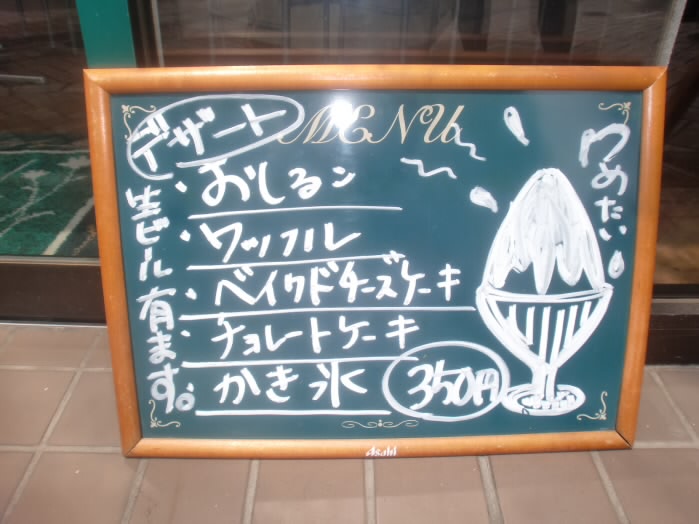 MENU
デザート
・おしるこ
・ワッフル
・ベイクドチーズケーキ
・チョレートケーキ
・かき氷 350円
生ビール有ます。
つめたい
Asahi